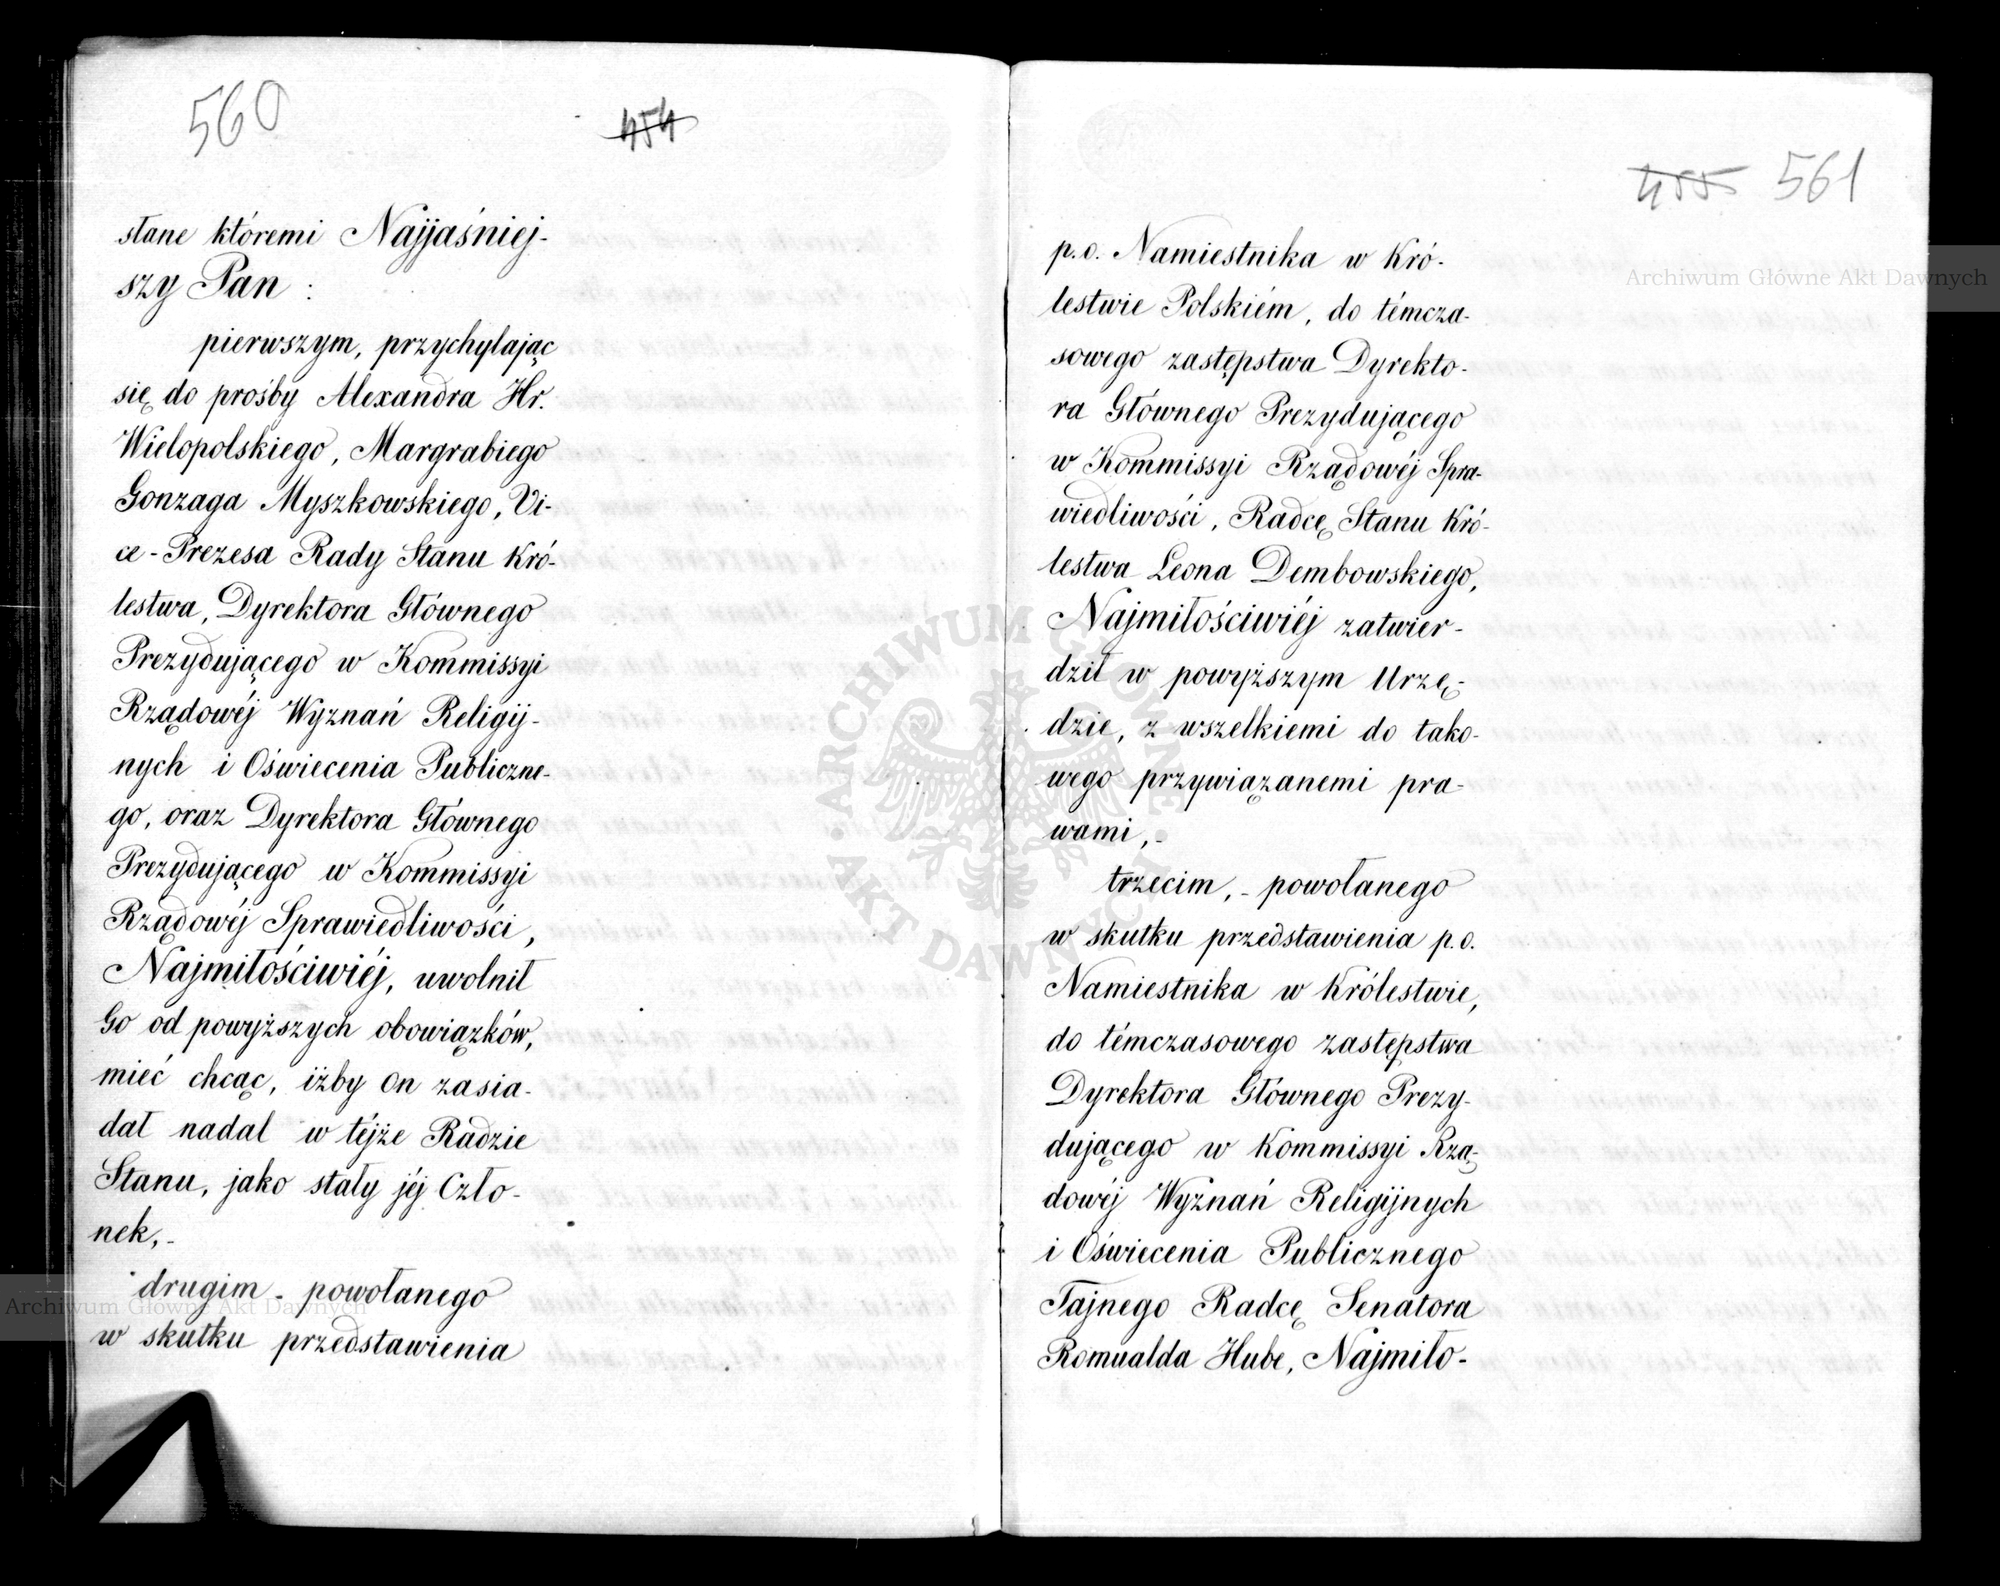 560
454
słane któremi Najjaśniej-
szy Pan :
pierwszym, przychylając
się do prośby Alexandra Hr.
Wielopolskiego, Margrabiego
Gonzaga Myszkowskiego, Vi-
ce-Prezesa Rady Stanu Kró-
lestwa, Dyrektora Głównego
Prezydującego w Kommissyi
Rządowéj Wyznań Religij-
nych i Oświecenia Publiczne-
go, oraz Dyrektora Głównego
Prezydującego w Kommissyi
Rządowéj Sprawiedliwości,
Najmiłościwiéj, uwolnił
Go od powyższych obowiązków,
mieć chcąc, iżby On zasia-
dał nadal w téjże Radzie
Stanu, jako stały jéj Czło-
nek,-
drugim - powołanego
w skutku przedstawienia
455 561
p.o. Namiestnika w Kró-
lestwie Polskiém, do témcza-
sowego zastępstwa Dyrekto-
ra Głównego Prezydującego
w Kommissyi Rządowéj Spra-
wiedliwości, Radcę Stanu Kró-
lestwa Leona Dembowskiego,
Najmiłościwiéj zatwier-
dził w powyższym Urzę-
dzie, z wszelkiemi do tako-
wego przywiązanemi pra-
wami,-
trzecim,- powołanego
w skutku przedstawienia p.o.
Namiestnika w Królestwie,
do témczasowego zastępstwa
Dyrektora Głównego Prezy-
dującego w Kommissyi Rzą-
dowéj Wyznań Religijnych
i Oświecenia Publicznego
Tajnego Radcę Senatora
Romualda Hube, Najmiło-
Archiwum Główne Akt Dawnych
Archiwum Główne Akt Dawnych
ARCHIWUM GŁÓWNE AKT DAWNYCH